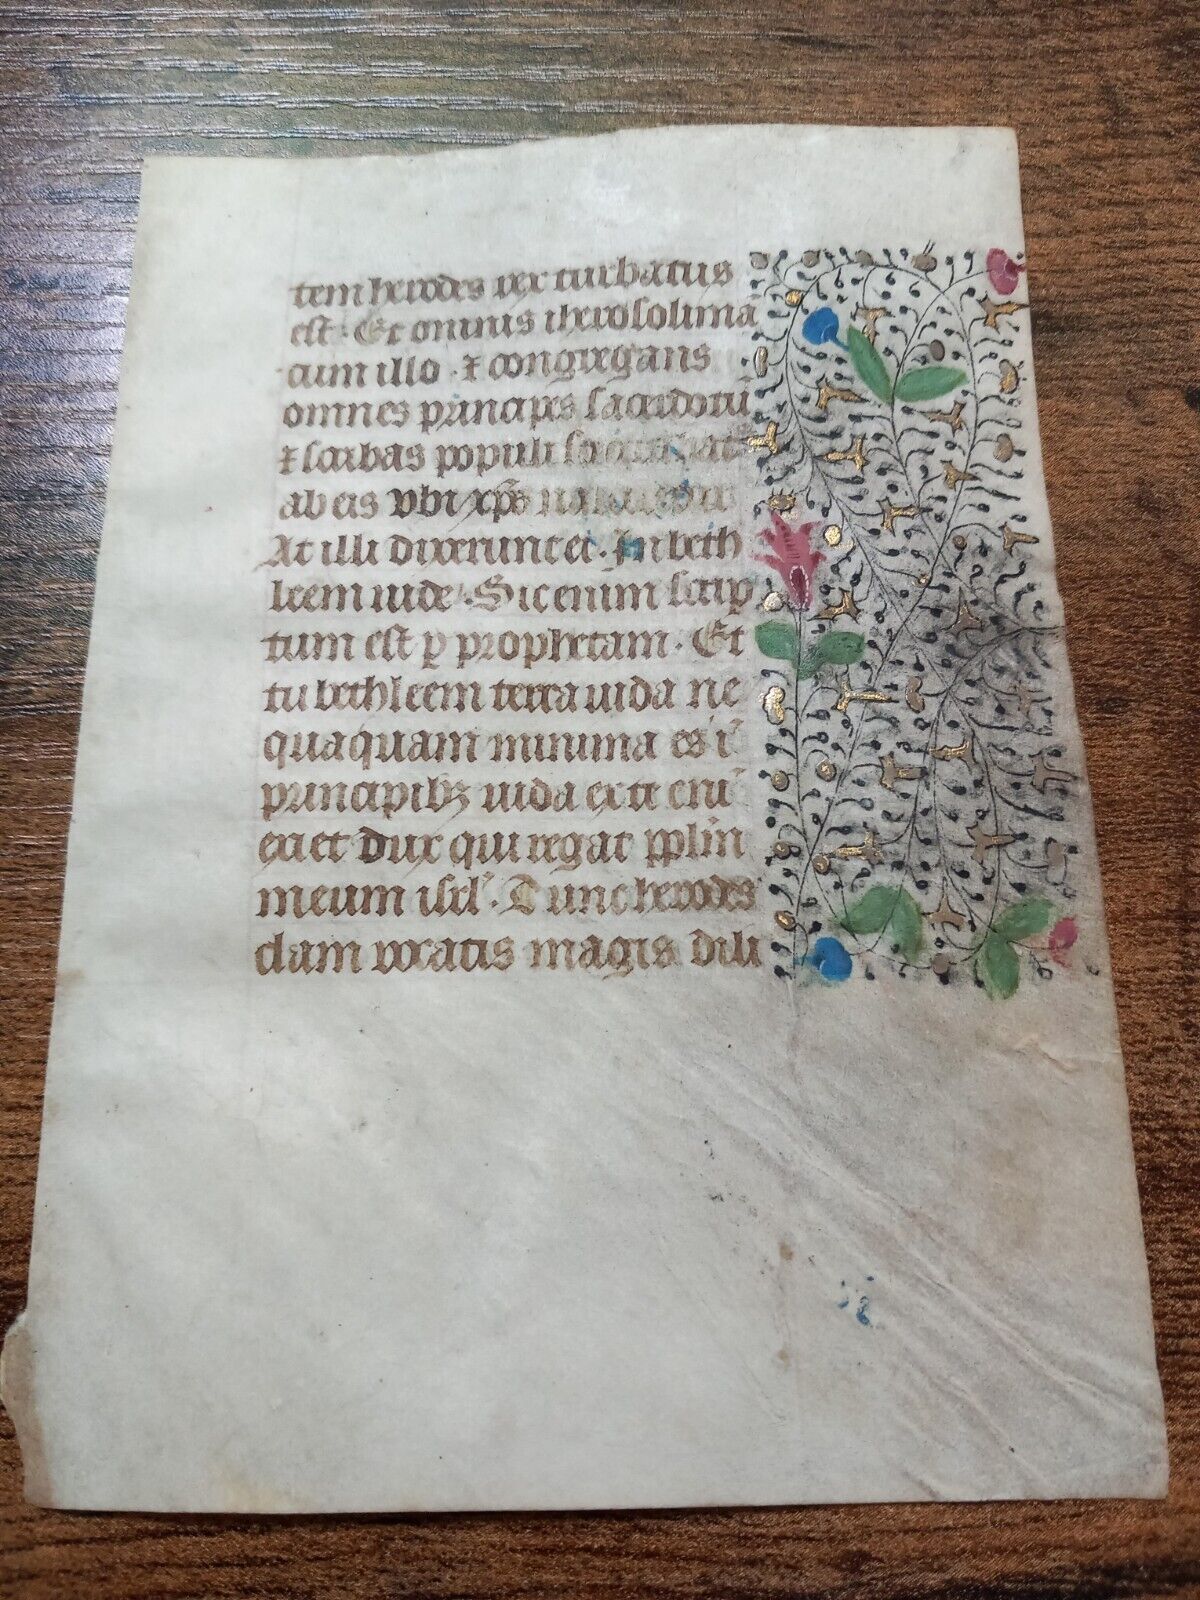 tem herodes rex turbatus
est · Et omnis iherosolima
cum illo · ⁊ congregans
omnes principes sacerdotū
⁊ scribas populi
ab eis vbi xp̄s
At illi dixerunt ei · In beth
leem iude · Sic enim scrip
tum est ꝑ prophetam · Et
tu bethleem terra iuda ne
quaquam minima es ī
principibꝫ iuda ex te enī
exiet dux qui regat pplm̄
meum isrl̄ · Tunc herodes
clam vocatis magis dili